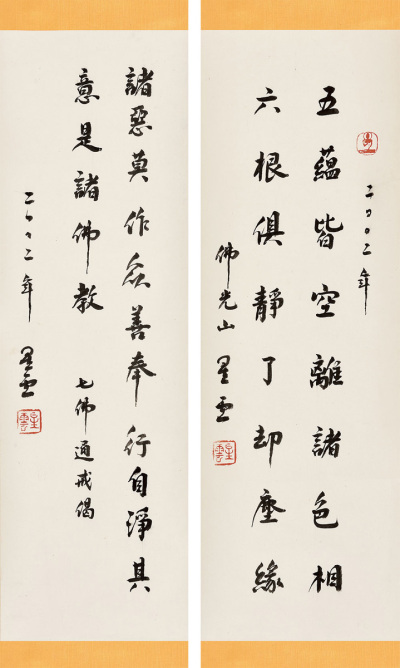 二〇〇二年
五蘊皆空離諸色相
六根俱靜了却塵緣
佛光山 星雲
星雲
諸惡莫作眾善奉行自淨其
意是諸佛教 七佛通戒偈
二〇〇二年 星雲
星雲